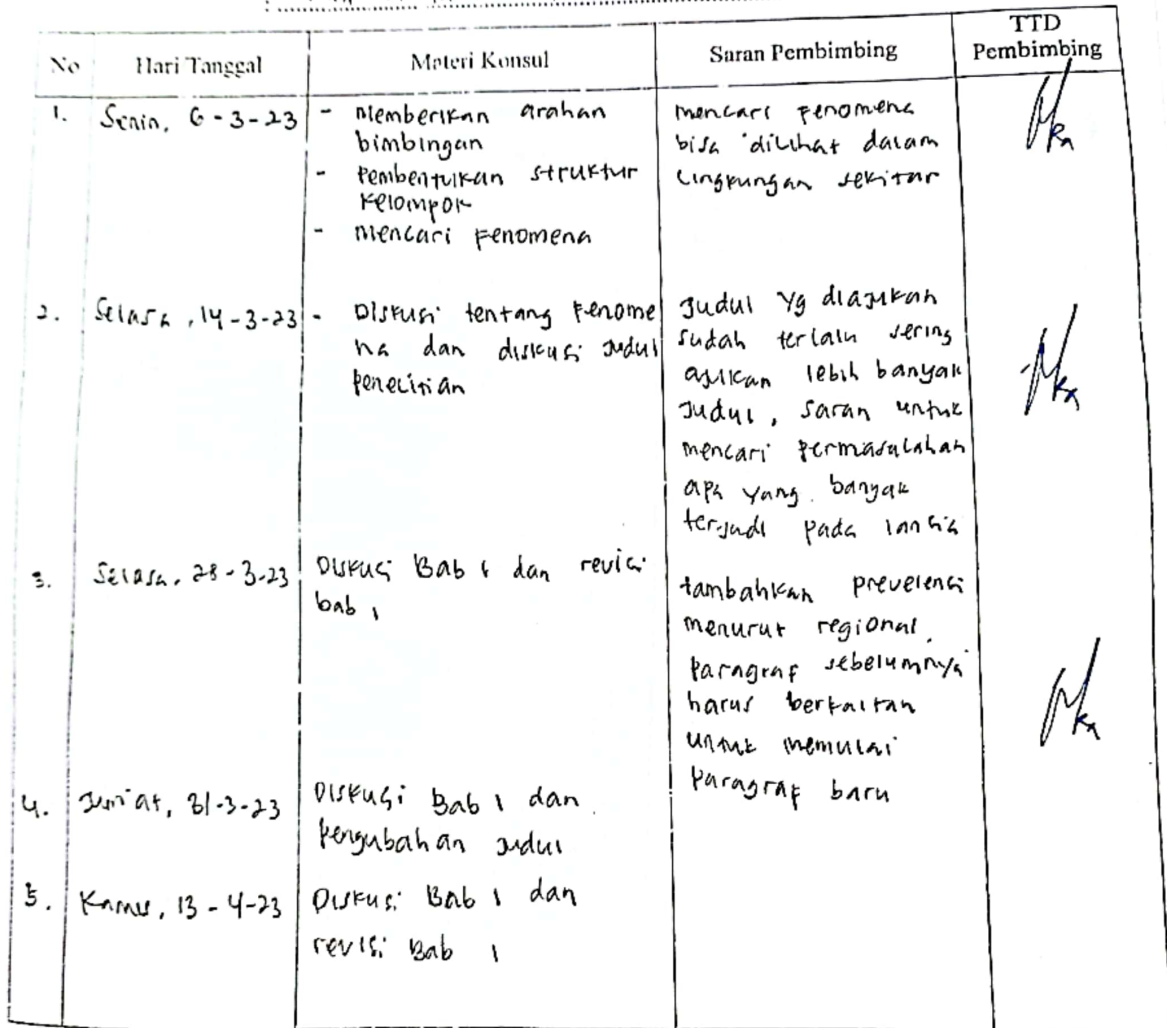 No Hari Tanggal Materi Konsul Saran Pembimbing TTD Pembimbing
1. Senin, 6-3-23
- Memberikan arahan
bimbingan
- Pembentukan struktur
kelompok
- mencari fenomena
mencari fenomena
bisa dilihat dalam
lingkungan sekitar
2. Selasa, 14-3-23
- Diskusi tentang fenome
na dan diskusi judul
penelitian
Judul yg diajukan
sudah terlalu sering
ajukan lebih banyak
Judul, saran untuk
mencari permasalahan
apa yang banyak
terjadi pada lansia
3. Selasa, 28-3-23
Diskusi Bab 1 dan revisi
bab 1
tambahkan prevelensi
menurut regional.
Paragraf sebelumnya
harus berkaitan
untuk memulai
Paragraf baru
4. Jum'at, 31-3-23
Diskusi Bab 1 dan
pengubahan judul
5. Kamis, 13-4-23
Diskusi Bab 1 dan
revisi Bab 1